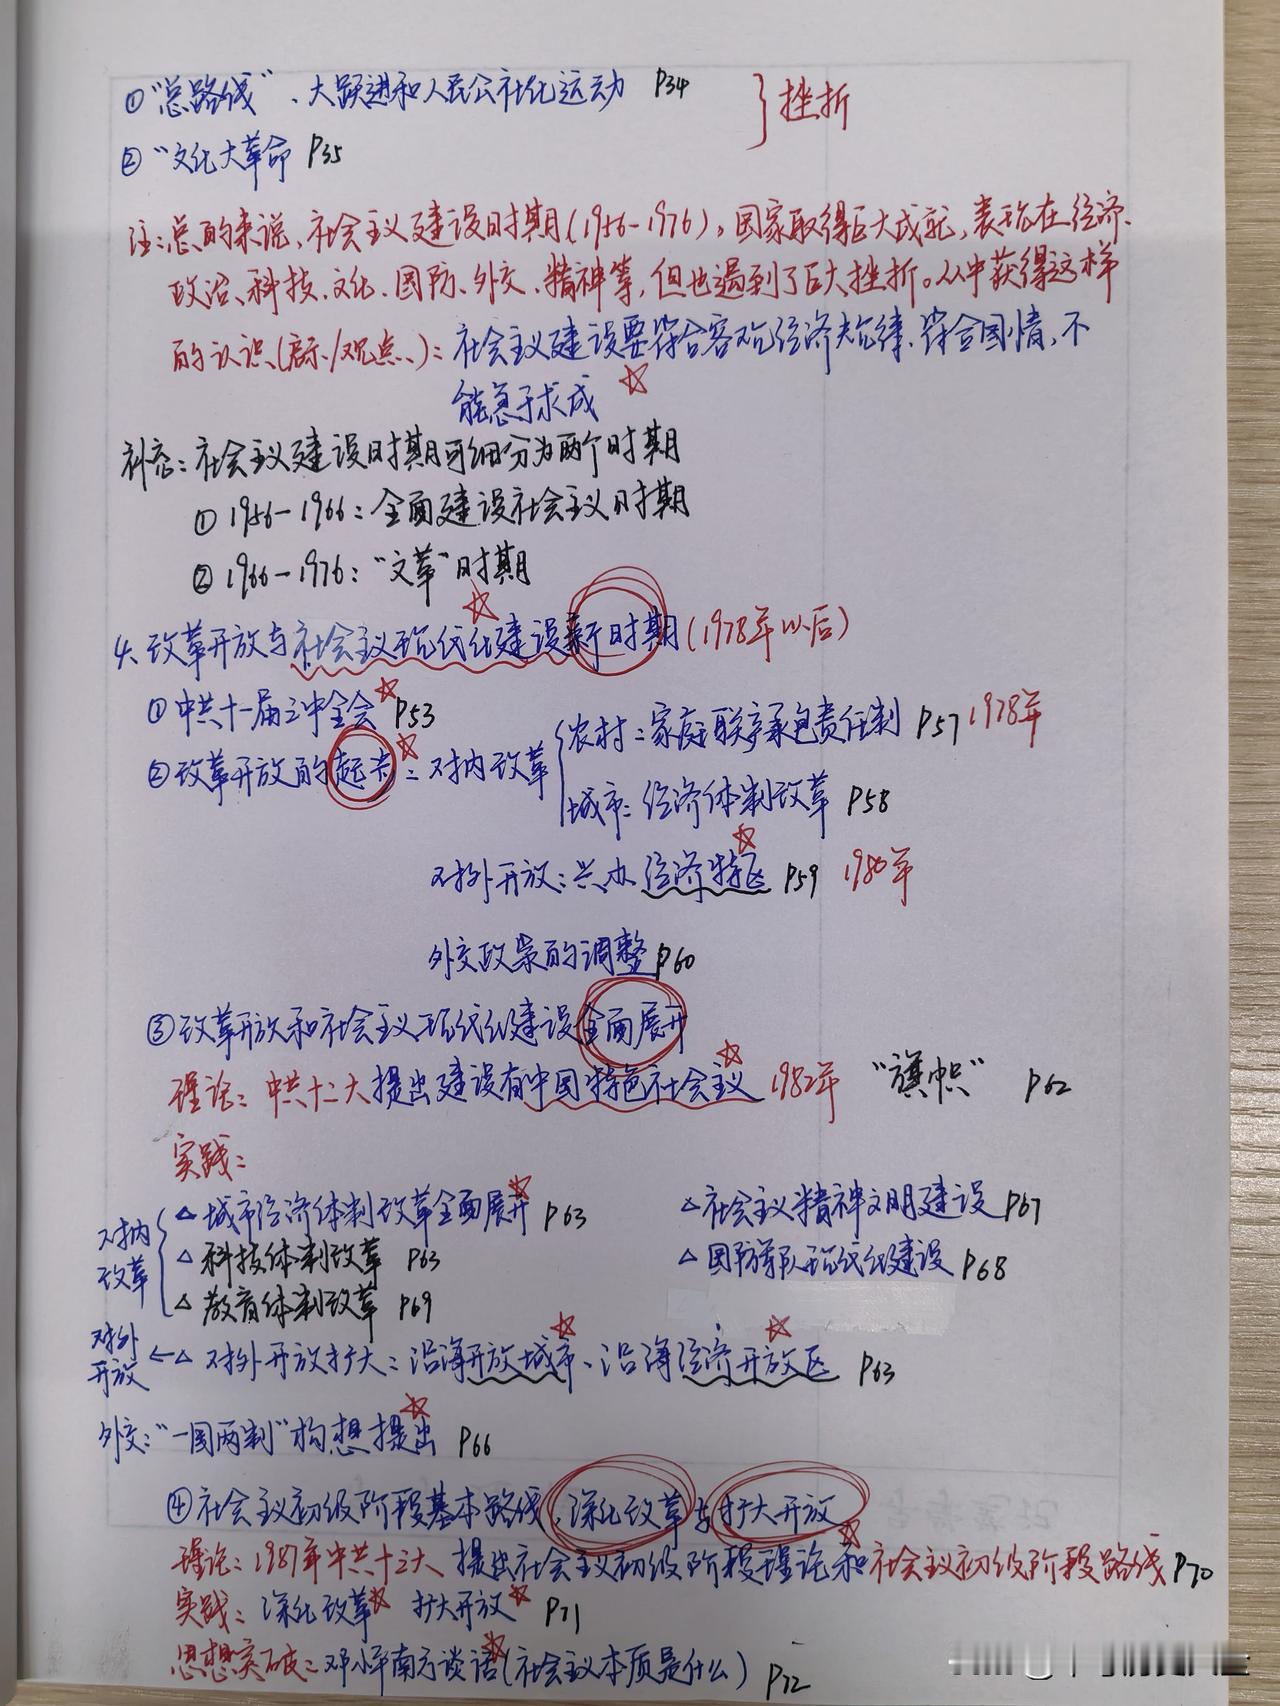 ①“总路线”、大跃进和人民公社化运动 P34 }挫折
②“文化大革命 P35
注:总的来说,社会主义建设时期(1956-1976),国家取得巨大成就,表现在经济、
政治、科技、文化、国防、外交、精神等,但也遇到了巨大挫折。从中获得这样
的认识(启示/观点):社会主义建设要符合客观经济规律、符合国情,不
能急于求成
补充:社会主义建设时期可细分为两个时期
①1956-1966:全面建设社会主义时期
②1966-1976:“文革”时期
4、改革开放与社会主义现代化建设新时期(1978年以后)
①中共十一届三中全会 P53
农村:家庭联产承包责任制 P57 1978年
②改革开放的起步:对内改革
城市:经济体制改革 P58
对外开放:兴办经济特区 P59 1980年
外交政策的调整 P60
③改革开放和社会主义现代化建设全面展开
理论:中共十二大提出建设有中国特色社会主义 1982年 “旗帜” P62
实践:
对内改革
△城市经济体制改革全面展开 P63 △社会主义精神文明建设 P67
△科技体制改革 P63 △国防军队现代化建设 P68
△教育体制改革 P69
对外开放 ←△对外开放扩大:沿海开放城市、沿海经济开放区 P63
外交:“一国两制”构想提出 P66
④社会主义初级阶段基本路线,深化改革与扩大开放
理论:1987年中共十三大 提出社会主义初级阶段理论和社会主义初级阶段路线 P70
实践:深化改革 扩大开放 P71
思想突破:邓小平南方谈话(社会主义本质是什么) P72